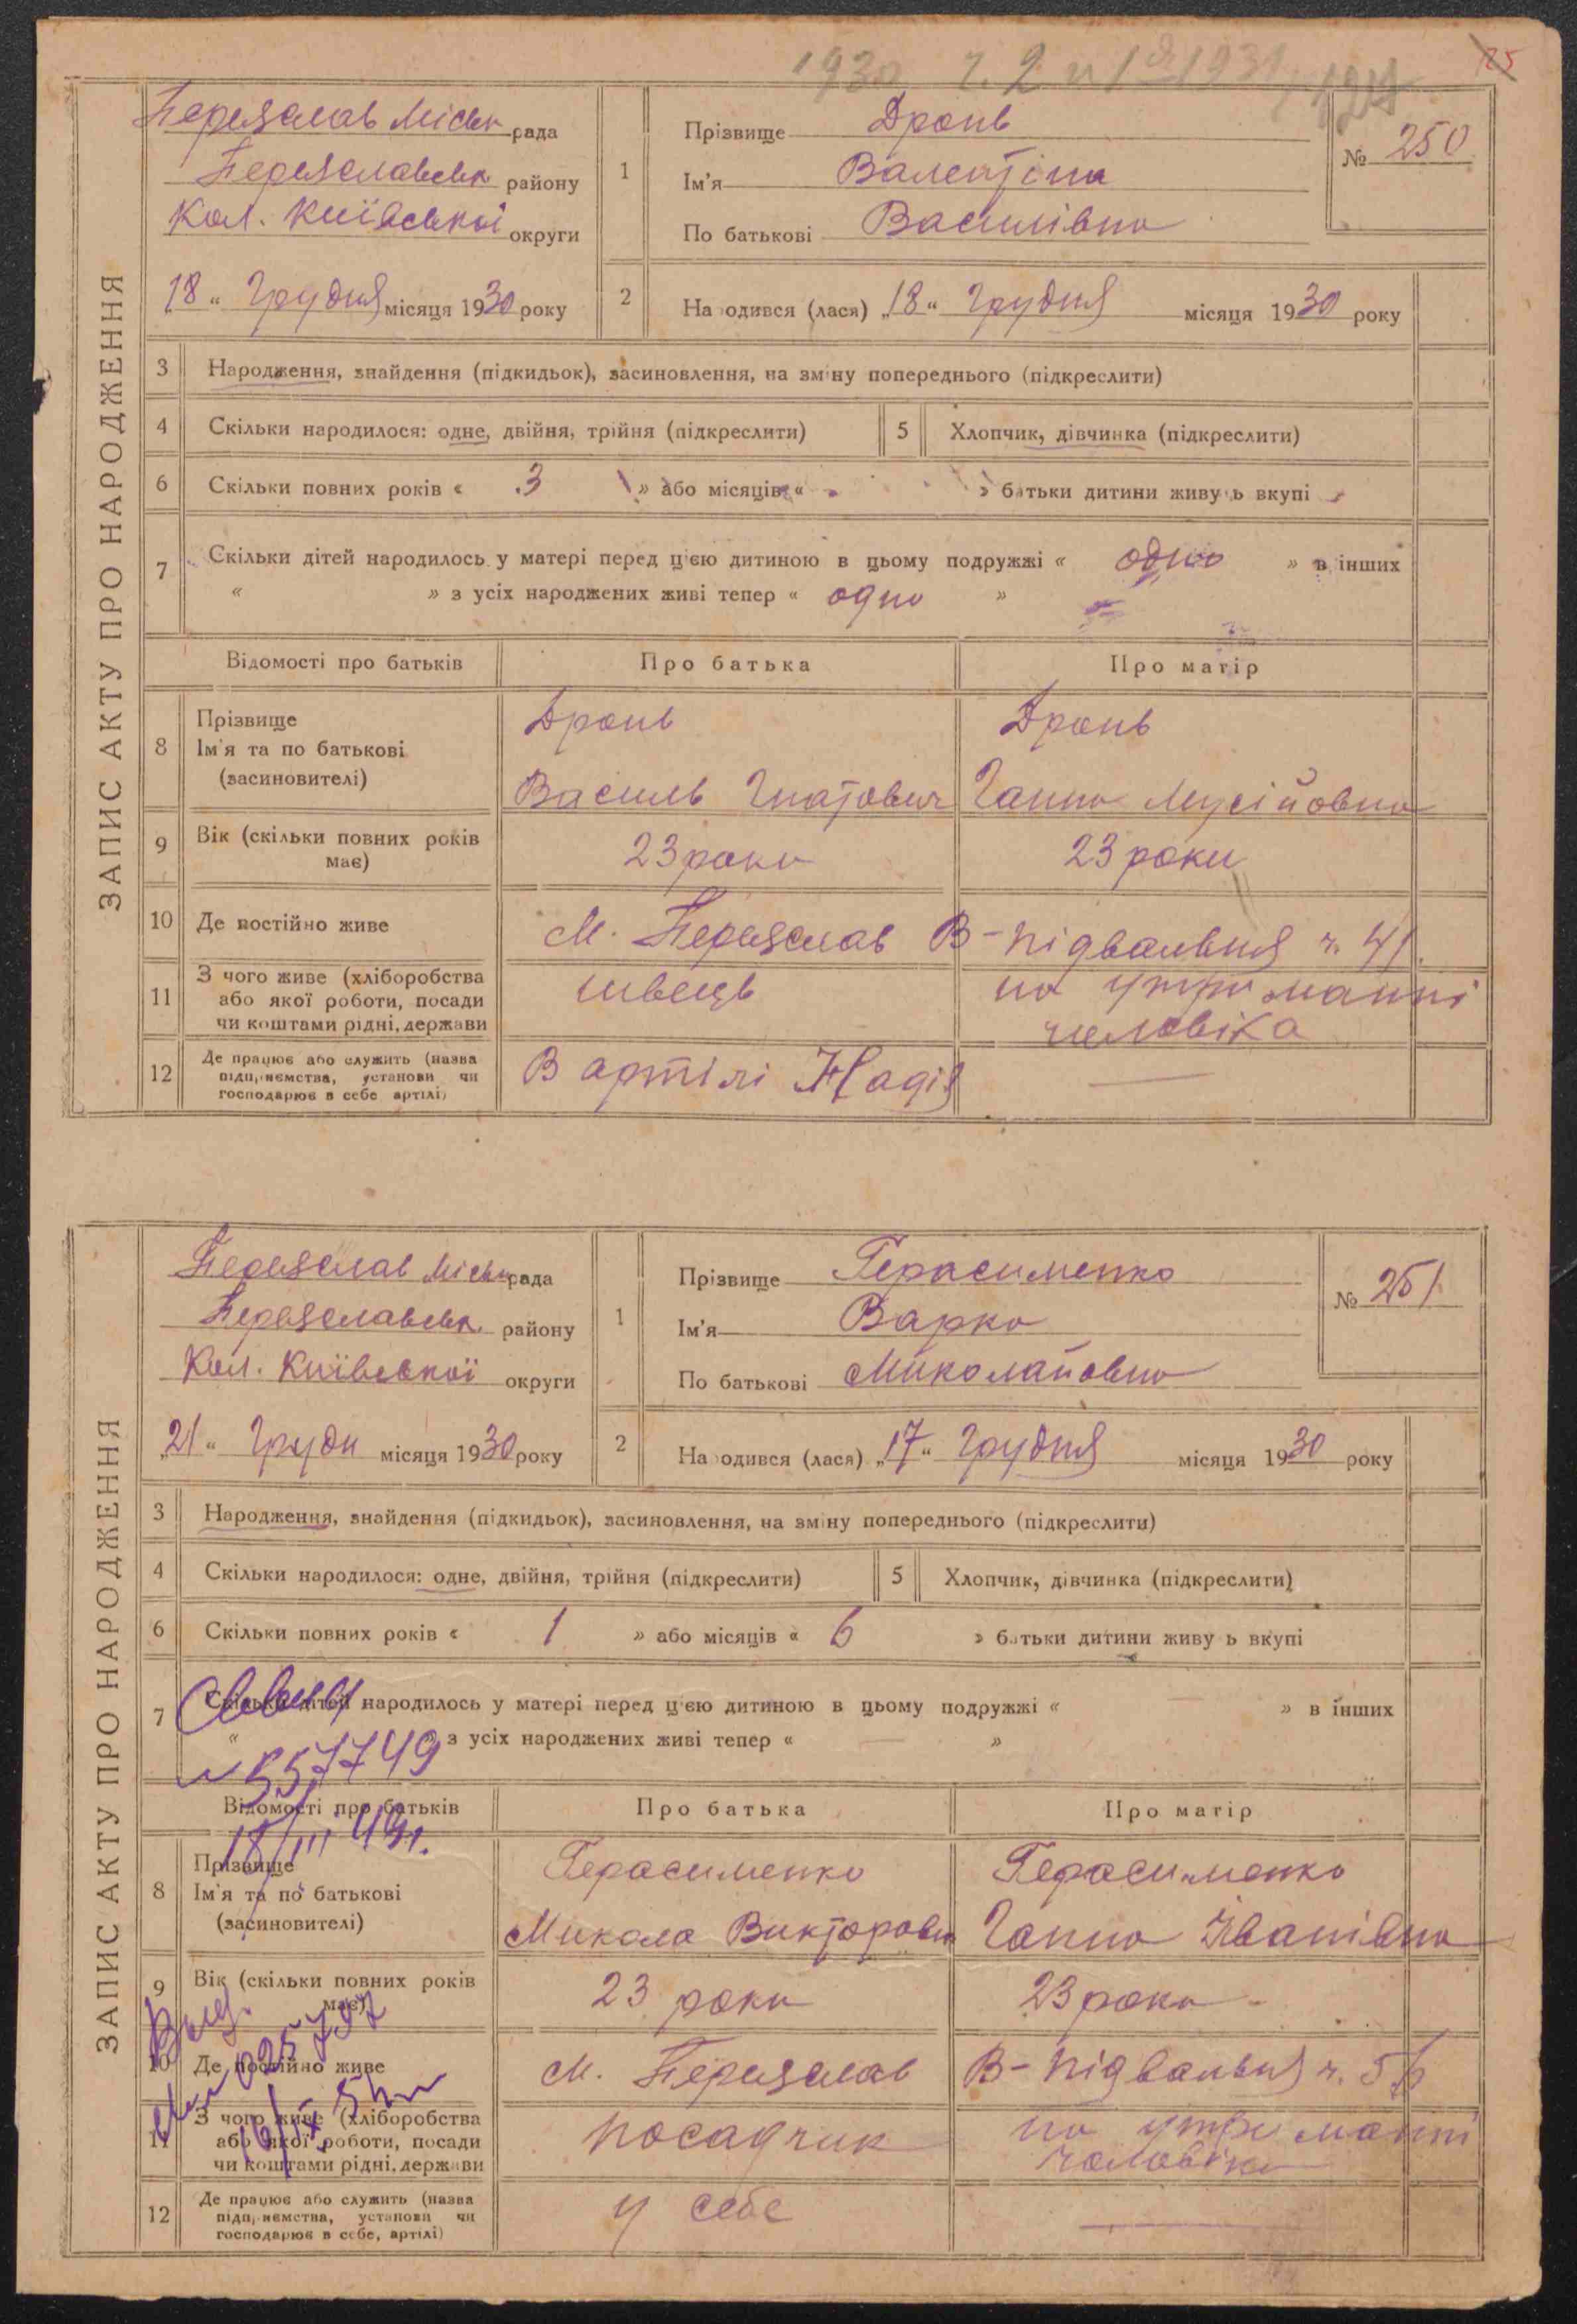 1930 ч. 2 и 1 1931
125
ЗАПИС АКТУ ПРО НАРОДЖЕННЯ
Переяслав Міськ рада
Переяславськ району
Кол. Київської округи
18 " Грудня місяця 1930 року
1
Прізвище Дронь
Ім'я Валентіна
По батькові Василівна
№ 250
2
Народився (лася) „18 " Грудня місяця 1930 року
3 Народження, знайдення (підкидьок), засиновлення, на зміну попереднього (підкреслити)
4 Скільки народилося: одне, двійня, трійня (підкреслити) 5 Хлопчик, дівчинка (підкреслити)
6 Скільки повних років « 3 » або місяців « » батьки дитини живуть вкупі
7 Скільки дітей народилось у матері перед цією дитиною в цьому подружжі « одно » в інших
« » з усіх народжених живі тепер « одно »
Відомості про батьків Про батька Про матір
8 Прізвище Дронь Дронь
Ім'я та по батькові
(засиновителі) Василь Гнатович Ганна Мусійовна
9 Вік (скільки повних років має) 23 роки 23 роки
10 Де постійно живе М. Переяслав В-Підвальня ч. 41.
11 З чого живе (хліборобства швець на утриманні
або якої роботи, посади чоловіка
чи коштами рідні, держави
12 Де працює або служить (назва В артілі Надія —
підприємства, установи чи
господарює в себе артілі)
ЗАПИС АКТУ ПРО НАРОДЖЕННЯ
Переяслав Міськ рада
Переяславськ району
Кол. Київської округи
„21 " Грудн місяця 1930 року
1
Прізвище Герасименко
Ім'я Варка
По батькові Миколайовна
№ 251
2
Народився (лася) „17 " Грудня місяця 1930 року
3 Народження, знайдення (підкидьок), засиновлення, на зміну попереднього (підкреслити)
4 Скільки народилося: одне, двійня, трійня (підкреслити) 5 Хлопчик, дівчинка (підкреслити)
6 Скільки повних років « 1 » або місяців « 6 » батьки дитини живуть вкупі
7 Скільки дітей народилось у матері перед цією дитиною в цьому подружжі « » в інших
« » з усіх народжених живі тепер « — »
557749
18/III 49г.
Відомості про батьків Про батька Про матір
8 Прізвище Герасименко Герасименко
Ім'я та по батькові
(засиновителі) Микола Викторович Ганна Іванівна
9 Вік (скільки повних років має) 23 роки 23 роки
Выд.
025797
16/IX 54
10 Де постійно живе М. Переяслав В-Підвальня ч.
11 З чого живе (хліборобства посадчик на утриманні
або якої роботи, посади чоловіка
чи коштами рідні, держави
12 Де працює або служить (назва у себе —
підприємства, установи чи
господарює в себе, артілі)